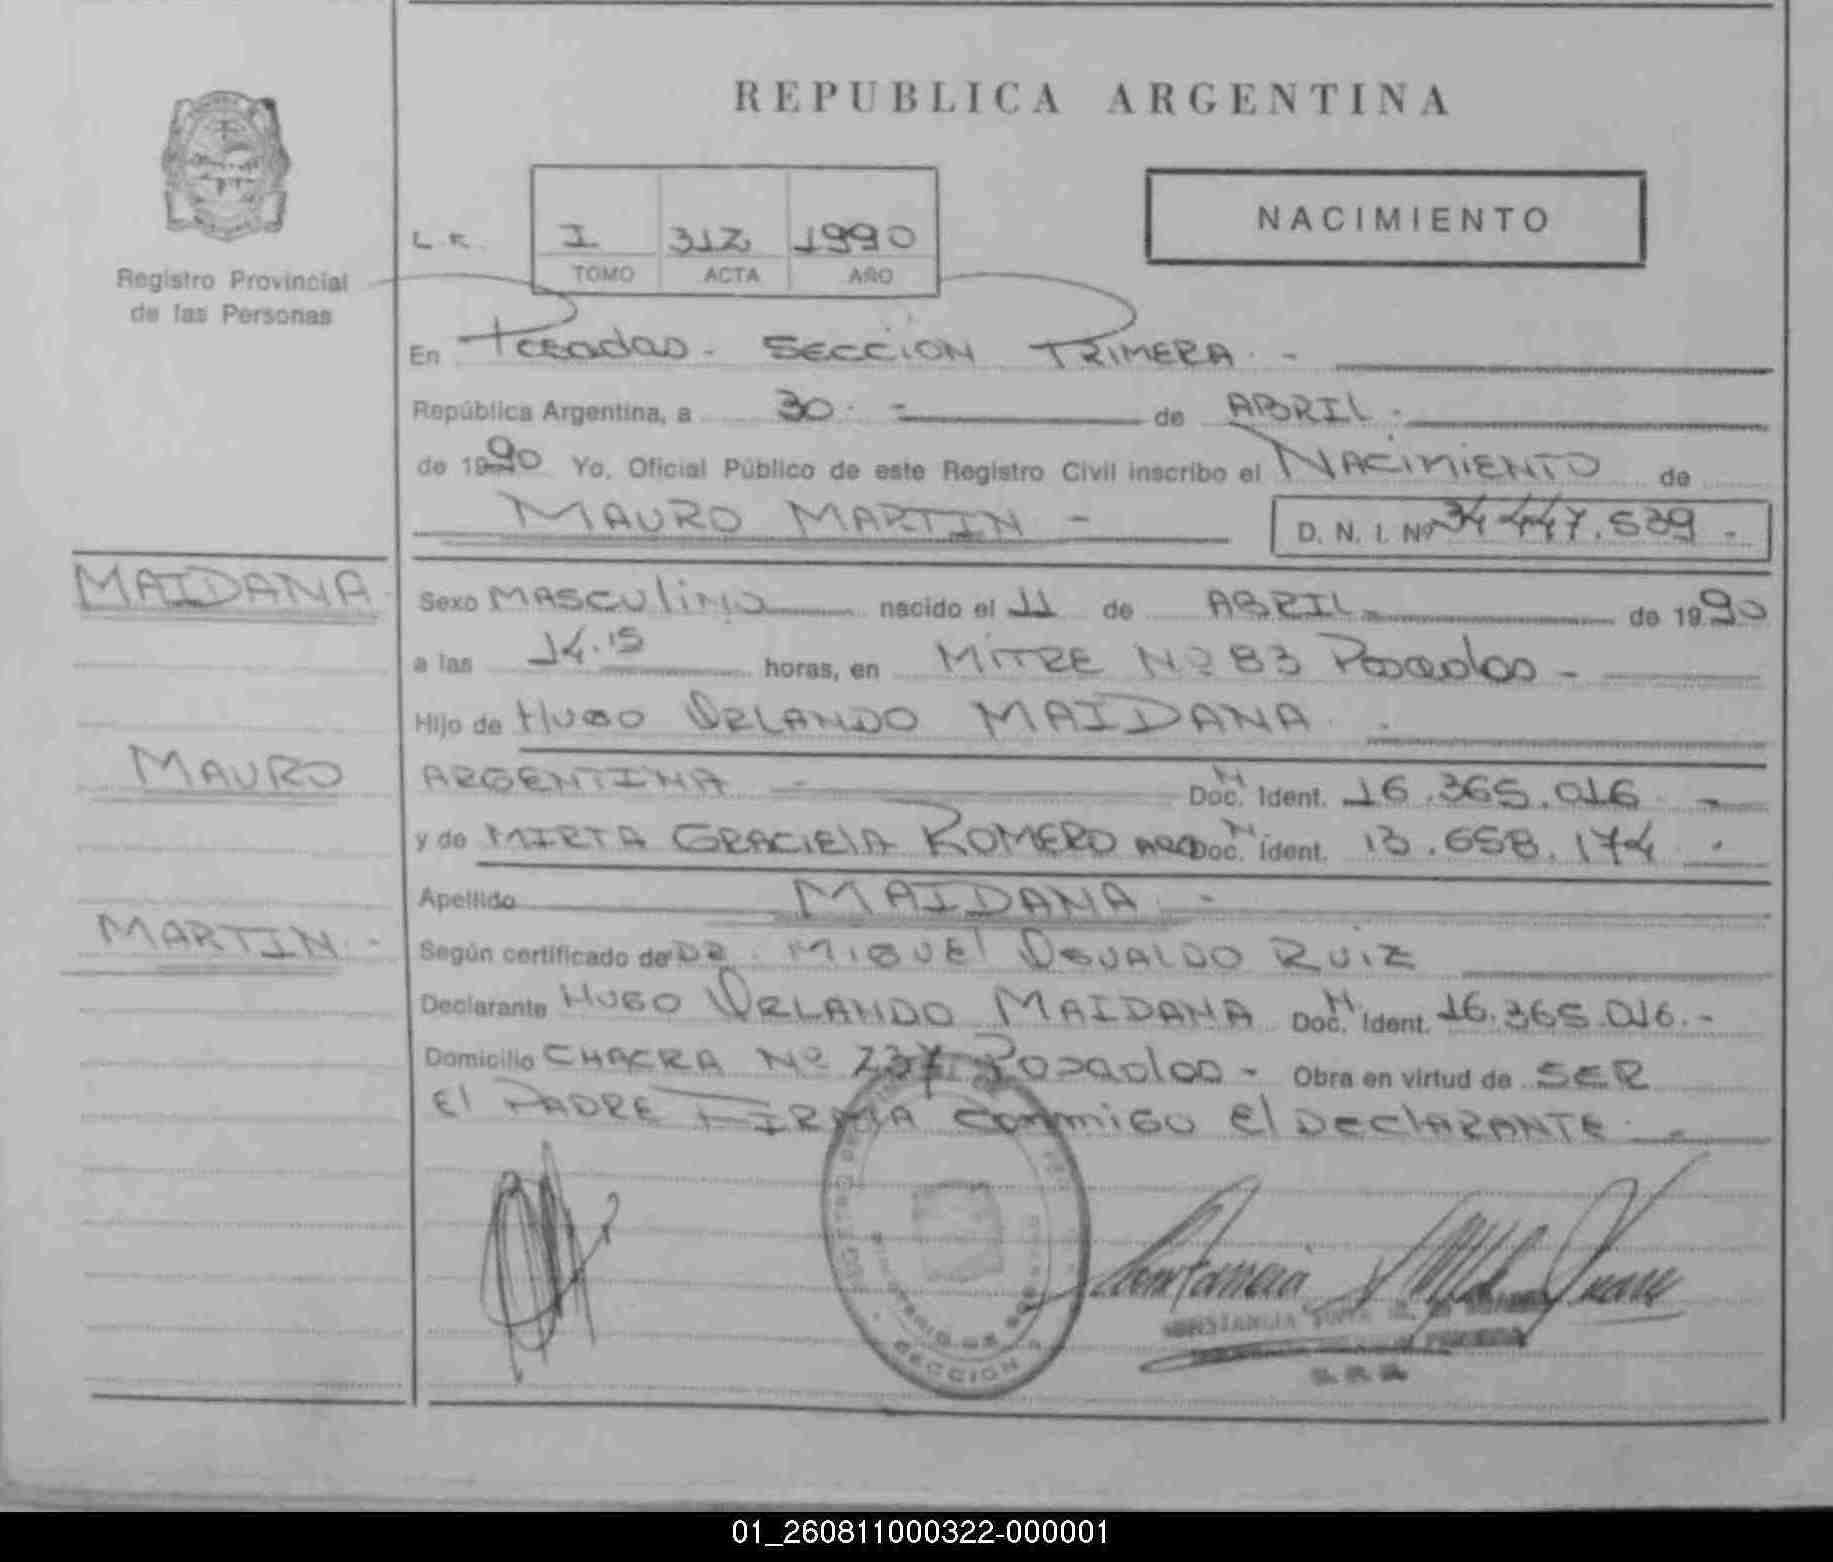 REPUBLICA ARGENTINA
Registro Provincial
de las Personas
NACIMIENTO
I 312 1990
TOMO ACTA AÑO
En Posadas - SECCION PRIMERA. -
República Argentina, a 30. - de ABRIL.
de 1990 Yo, Oficial Público de este Registro Civil inscribo el NACIMIENTO de
MAURO MARTIN -
D. N. I. Nº 34.447.539 -
MAIDANA
MAURO
MARTIN. -
Sexo MASCULINO nacido el 11 de ABRIL de 1990
a las 14.15 horas, en MITRE Nº 83 Posadas -
Hijo de HUGO ORLANDO MAIDANA. -
ARGENTINA - Doc. N Ident. 16.365.016 -
y de MIRTA GRACIELA ROMERO ARG Doc. N Ident. 13.658.174 -
Apellido MAIDANA. -
Según certificado de DR. MIGUEL OSVALDO RUIZ
Declarante HUGO ORLANDO MAIDANA Doc. N Ident. 16.365.016. -
Domicilio CHACRA Nº Posadas - Obra en virtud de SER
El PADRE FIRMA conmigo El DECLARANTE. -
MINISTERIO DE
SECCION
CONSTANCIA
01_260811000322-000001